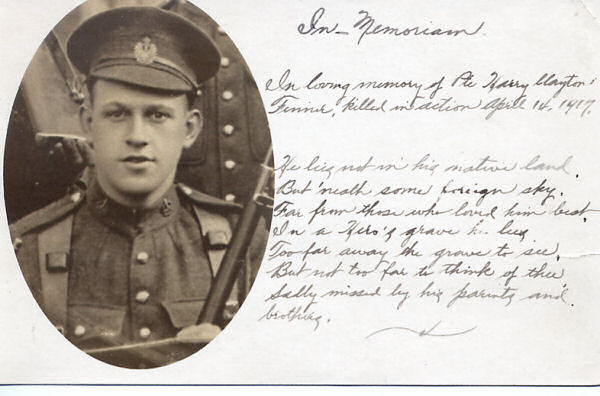 In Memoriam.
In loving memory of Pte Harry Clayton
killed in action April 14, 1917.
He lies not in his native land,
But 'neath some foreign sky.
Far from those who loved him best.
In a Hero's grave he lies
Too far away the grave to see,
But not too far to think of thee
Sadly missed by his parents and
brothers.